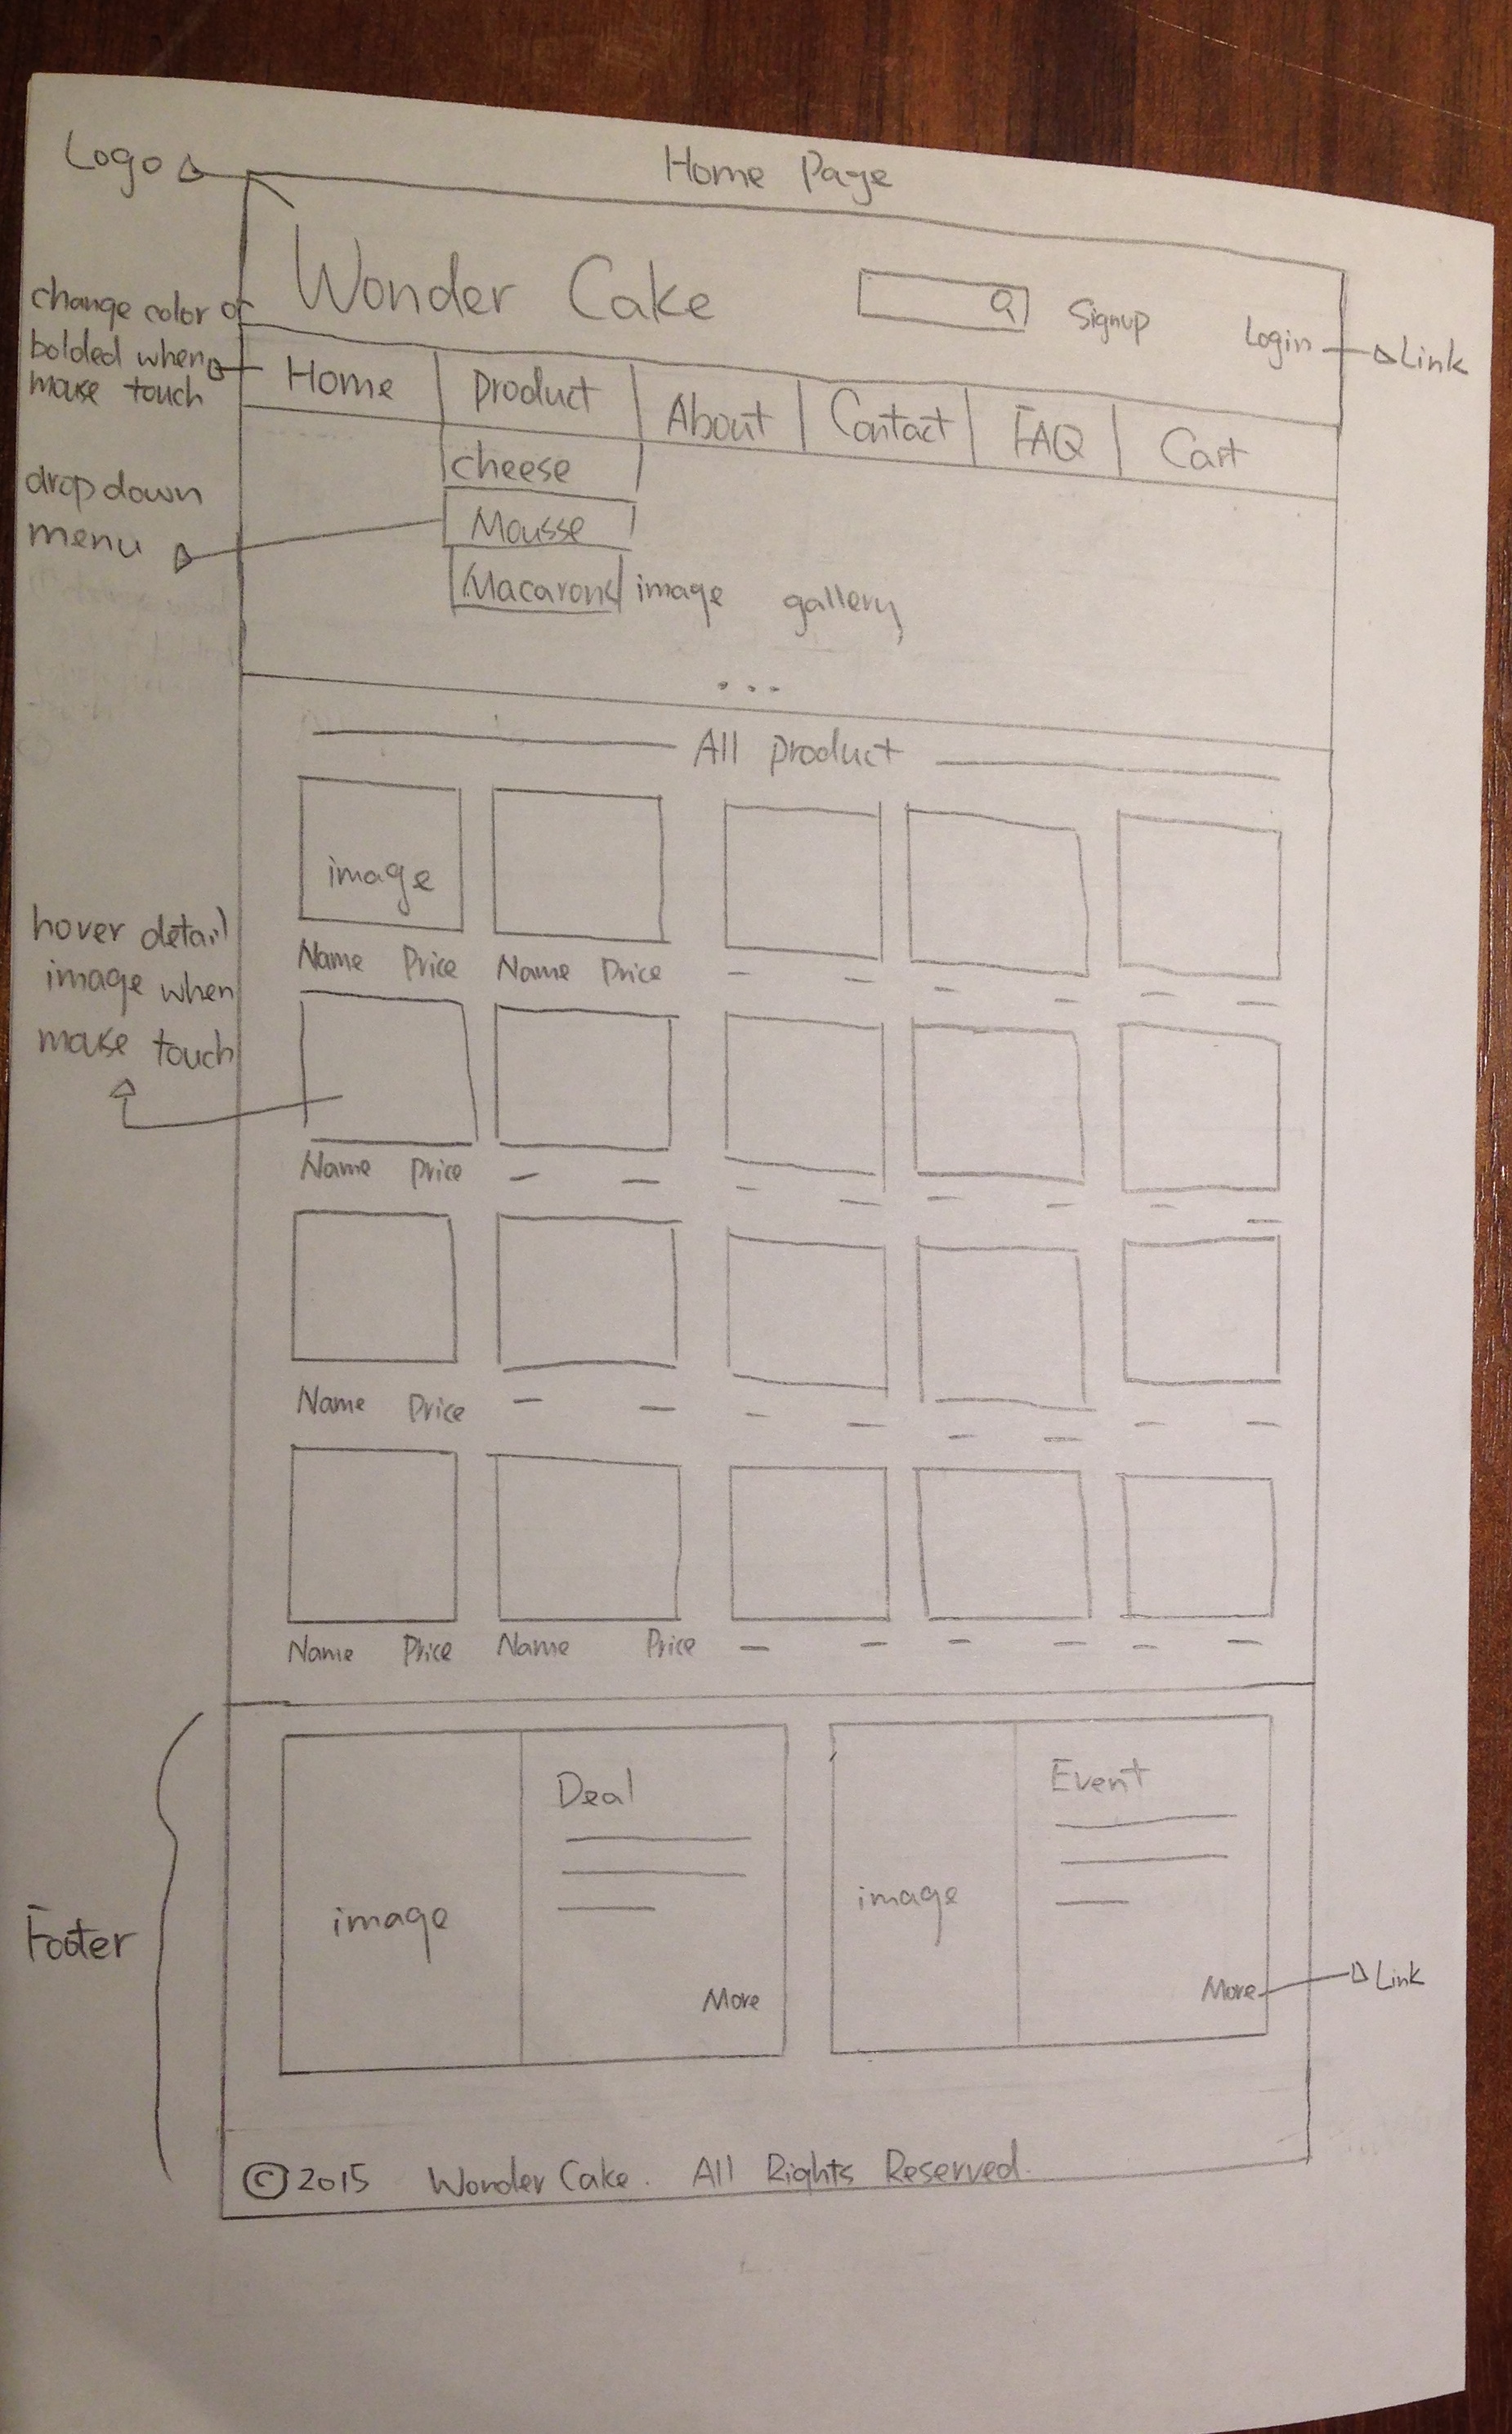 Home Page
Logo
Wonder Cake
Signup
Login
Link
change color or
bolded when
mouse touch
Home Product About Contact FAQ Cart
cheese
drop down
menu
Mousse
Macarons
image gallery
...
All product
image
hover detail
image when
mouse touch
Name Price Name Price
Name Price
Name Price
Name Price Name Price
Footer
Deal
image
More
Event
image
More
Link
© 2015 Wonder Cake. All Rights Reserved.